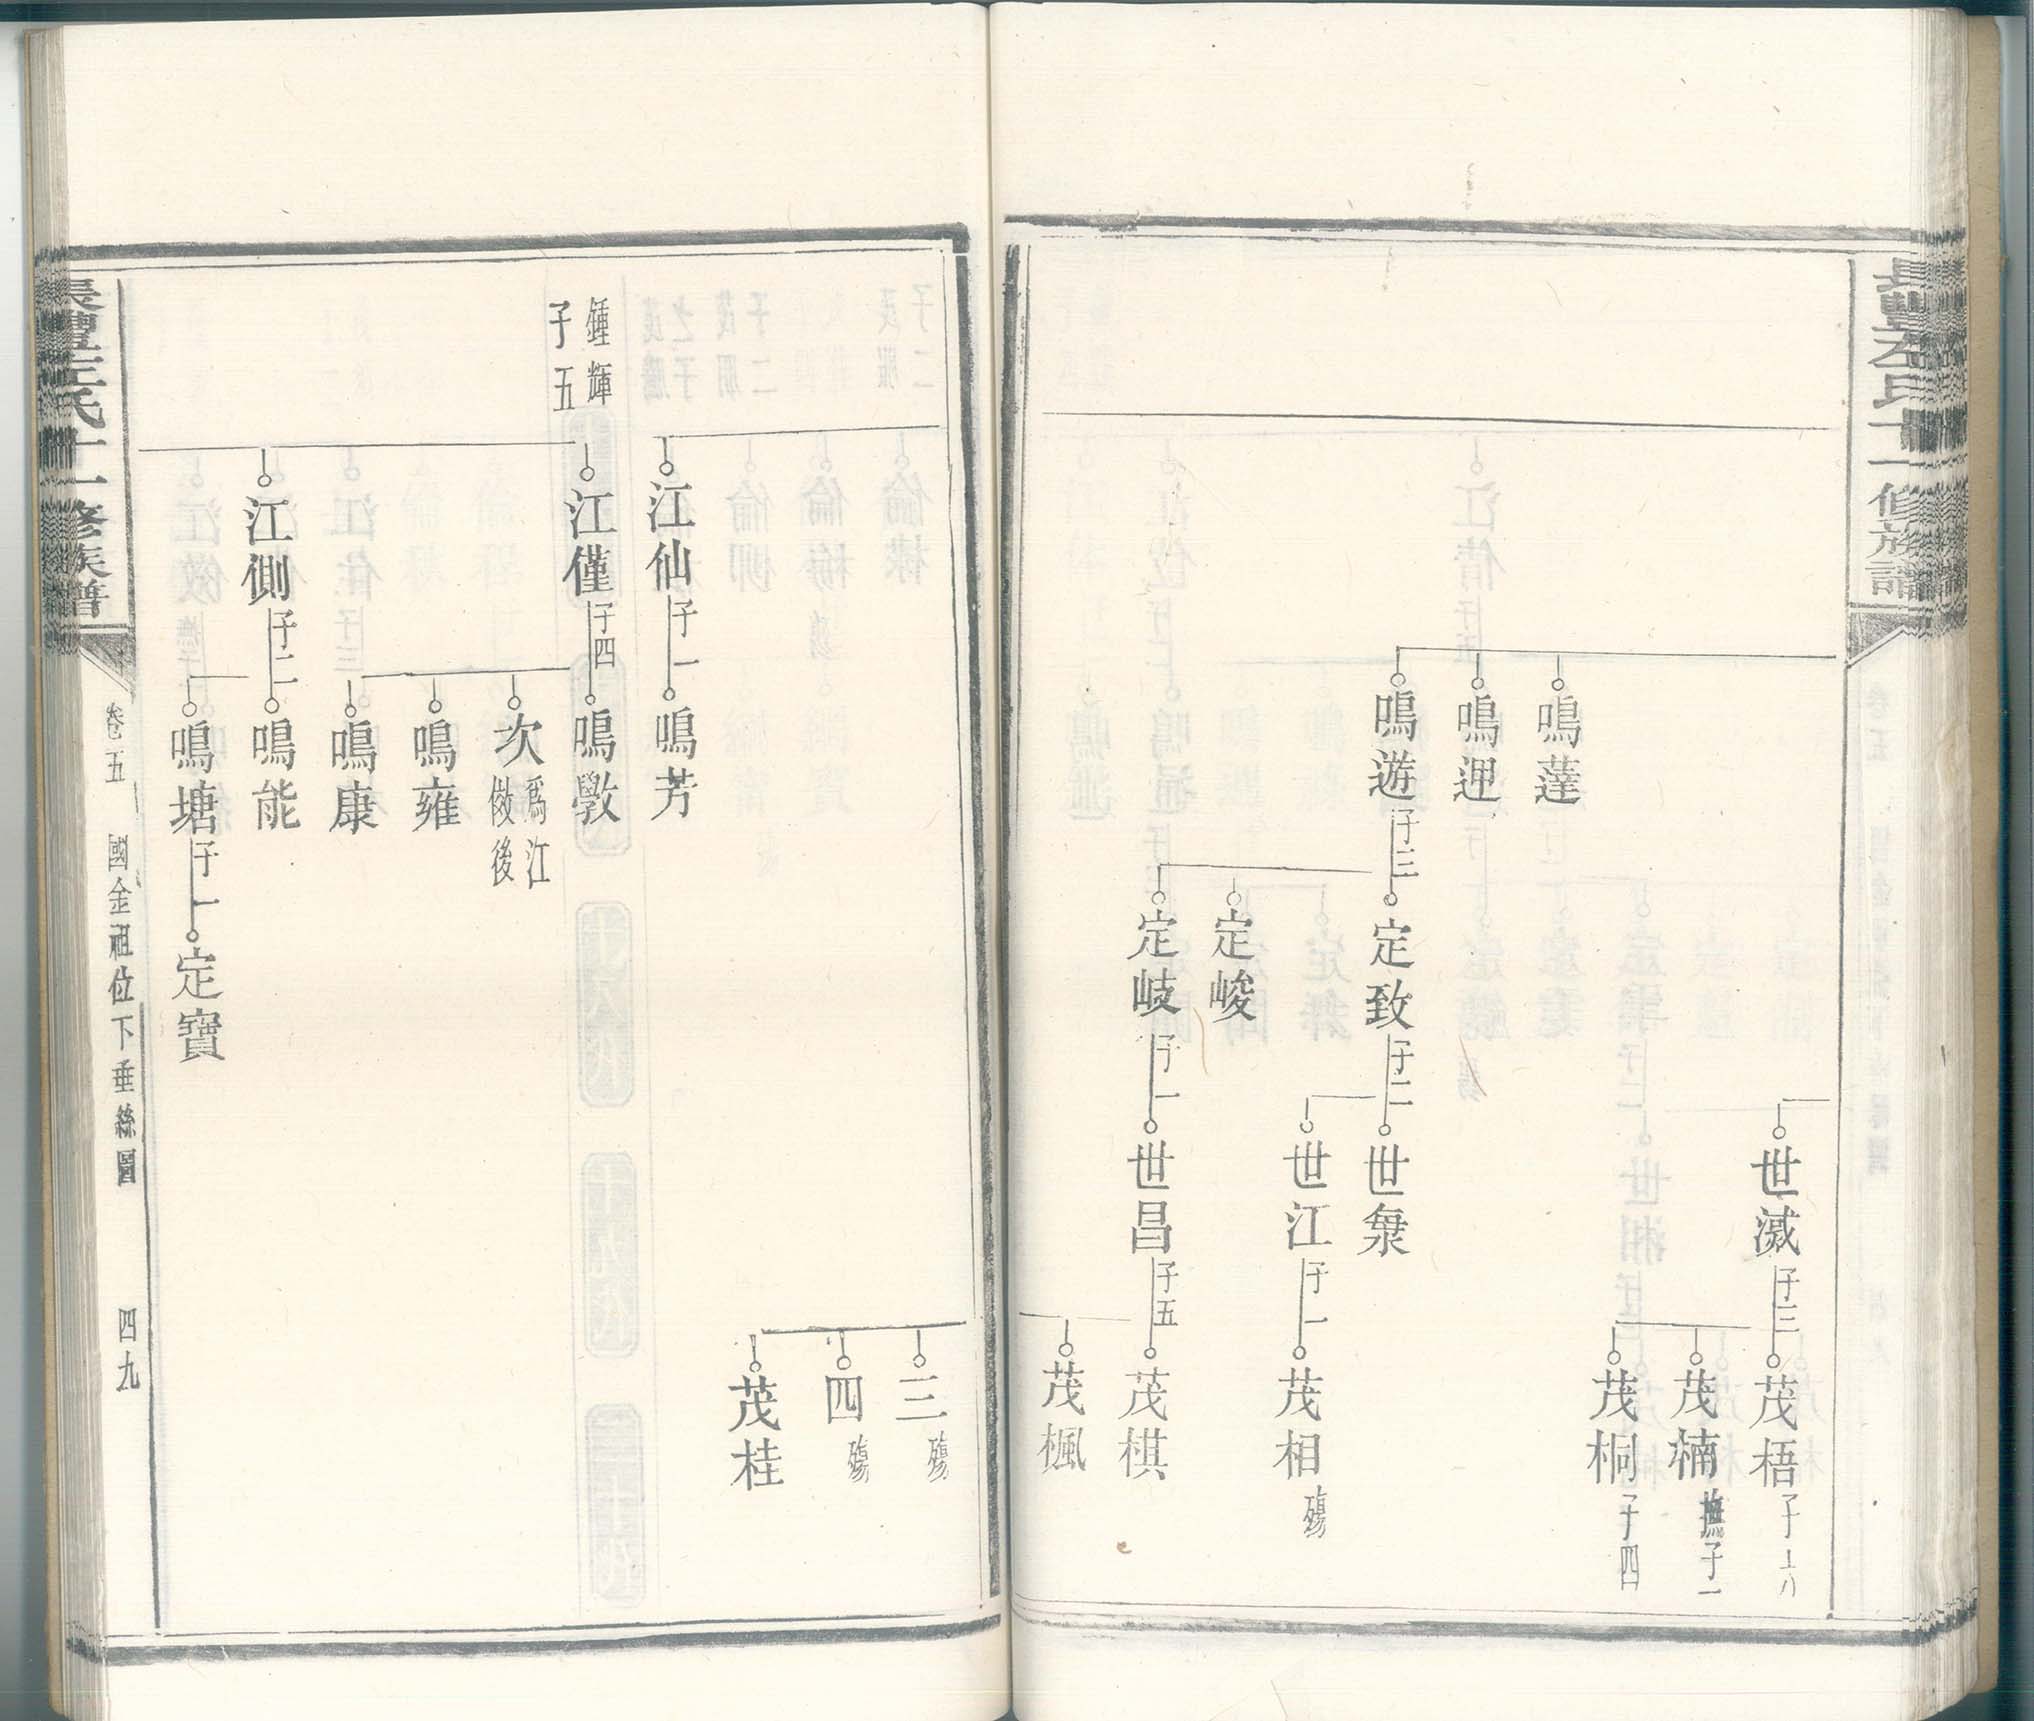 長豐左氏十一修族譜
世滅子三
茂梧子六
茂楠撫子一
茂桐子四
鳴薘
鳴逕
鳴遊子三
定致子二
世椉
世江子一
茂相殤
定峻
定岐子一
世昌子五
茂棋
茂楓
三殤
四殤
茂桂
江仙子一
鳴芳
鍾輝
子五
江僅子四
鳴斆
次爲江
倣後
鳴雍
鳴康
江側子二
鳴能
鳴塘子一
定寶
長豐左氏十一修族譜
卷五
國金祖位下垂絲圖
四九